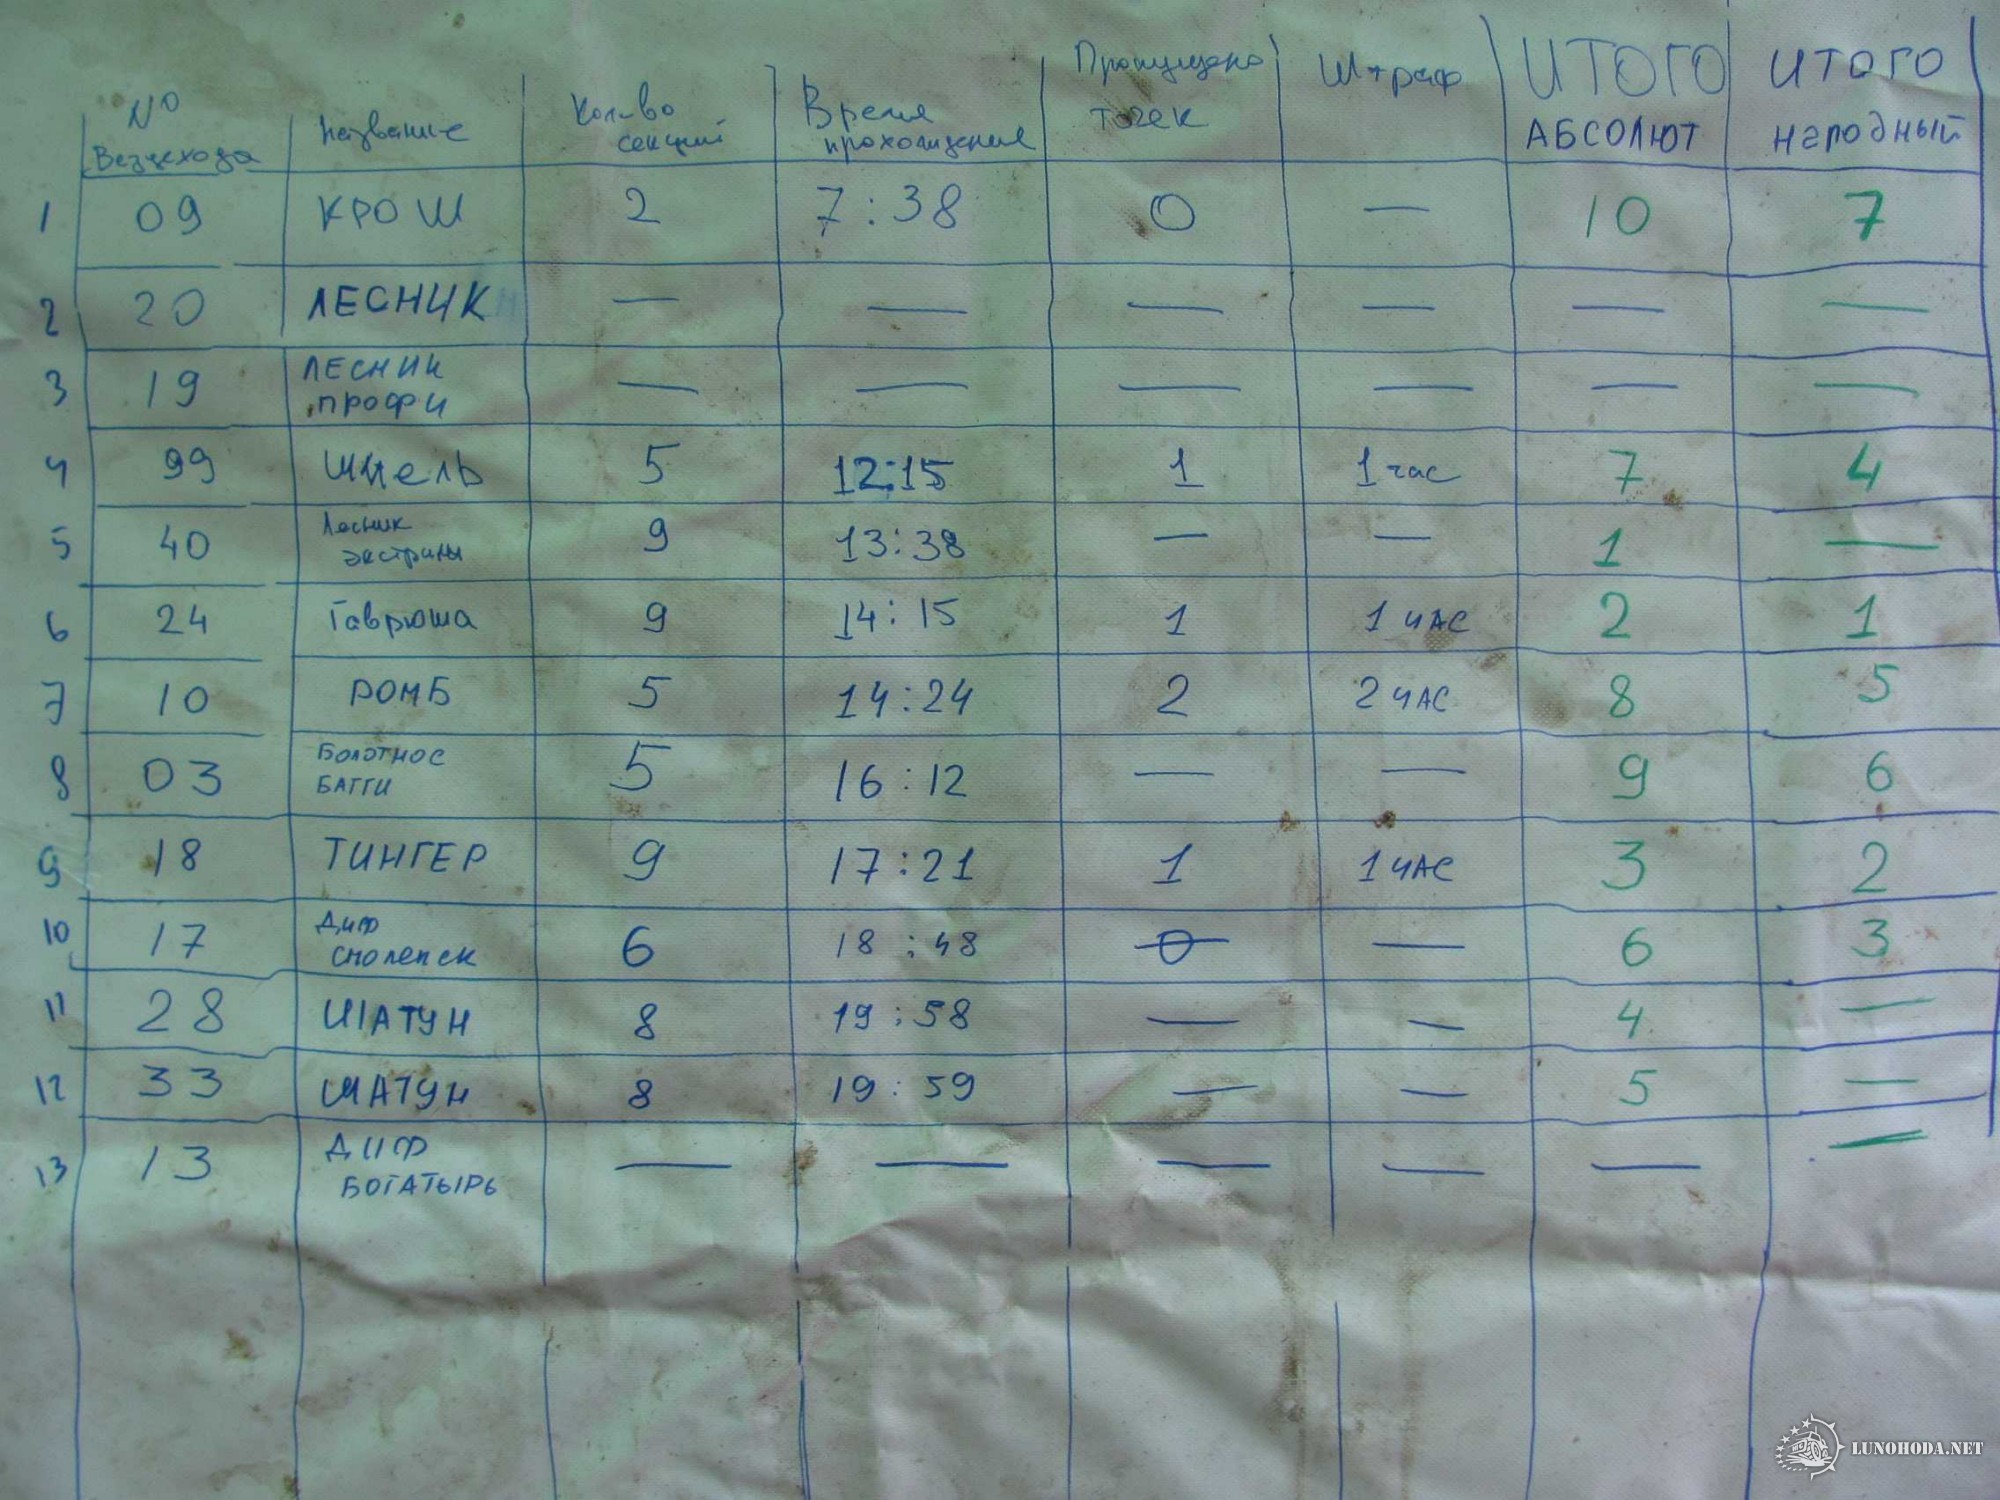 № Вездехода Название Кол-во секций Время прохождения Пропущено точек Штраф ИТОГО АБСОЛЮТ ИТОГО народный
1 09 КРОШ 2 7:38 0 — 10 7
2 20 ЛЕСНИК — — — — — —
3 19 ЛЕСНИК ПРОФИ — — — — — —
4 99 Шмель 5 12:15 1 1 час 7 4
5 40 Лесник экстрим 9 13:38 — — 1 —
6 24 Гаврюша 9 14:15 1 1 ЧАС 2 1
7 10 РОМБ 5 14:24 2 2 ЧАС 8 5
8 03 БОЛОТНОЕ БАГГИ 5 16:12 — — 9 6
9 18 ТИНГЕР 9 17:21 1 1 ЧАС 3 2
10 17 ДИФ Смоленск 6 18:48 0 — 6 3
11 28 ШАТУН 8 19:58 — — 4 —
12 33 ШАТУН 8 19:59 — — 5 —
13 13 ДИФ БОГАТЫРЬ — — — — — —
LUNOHODA.NET